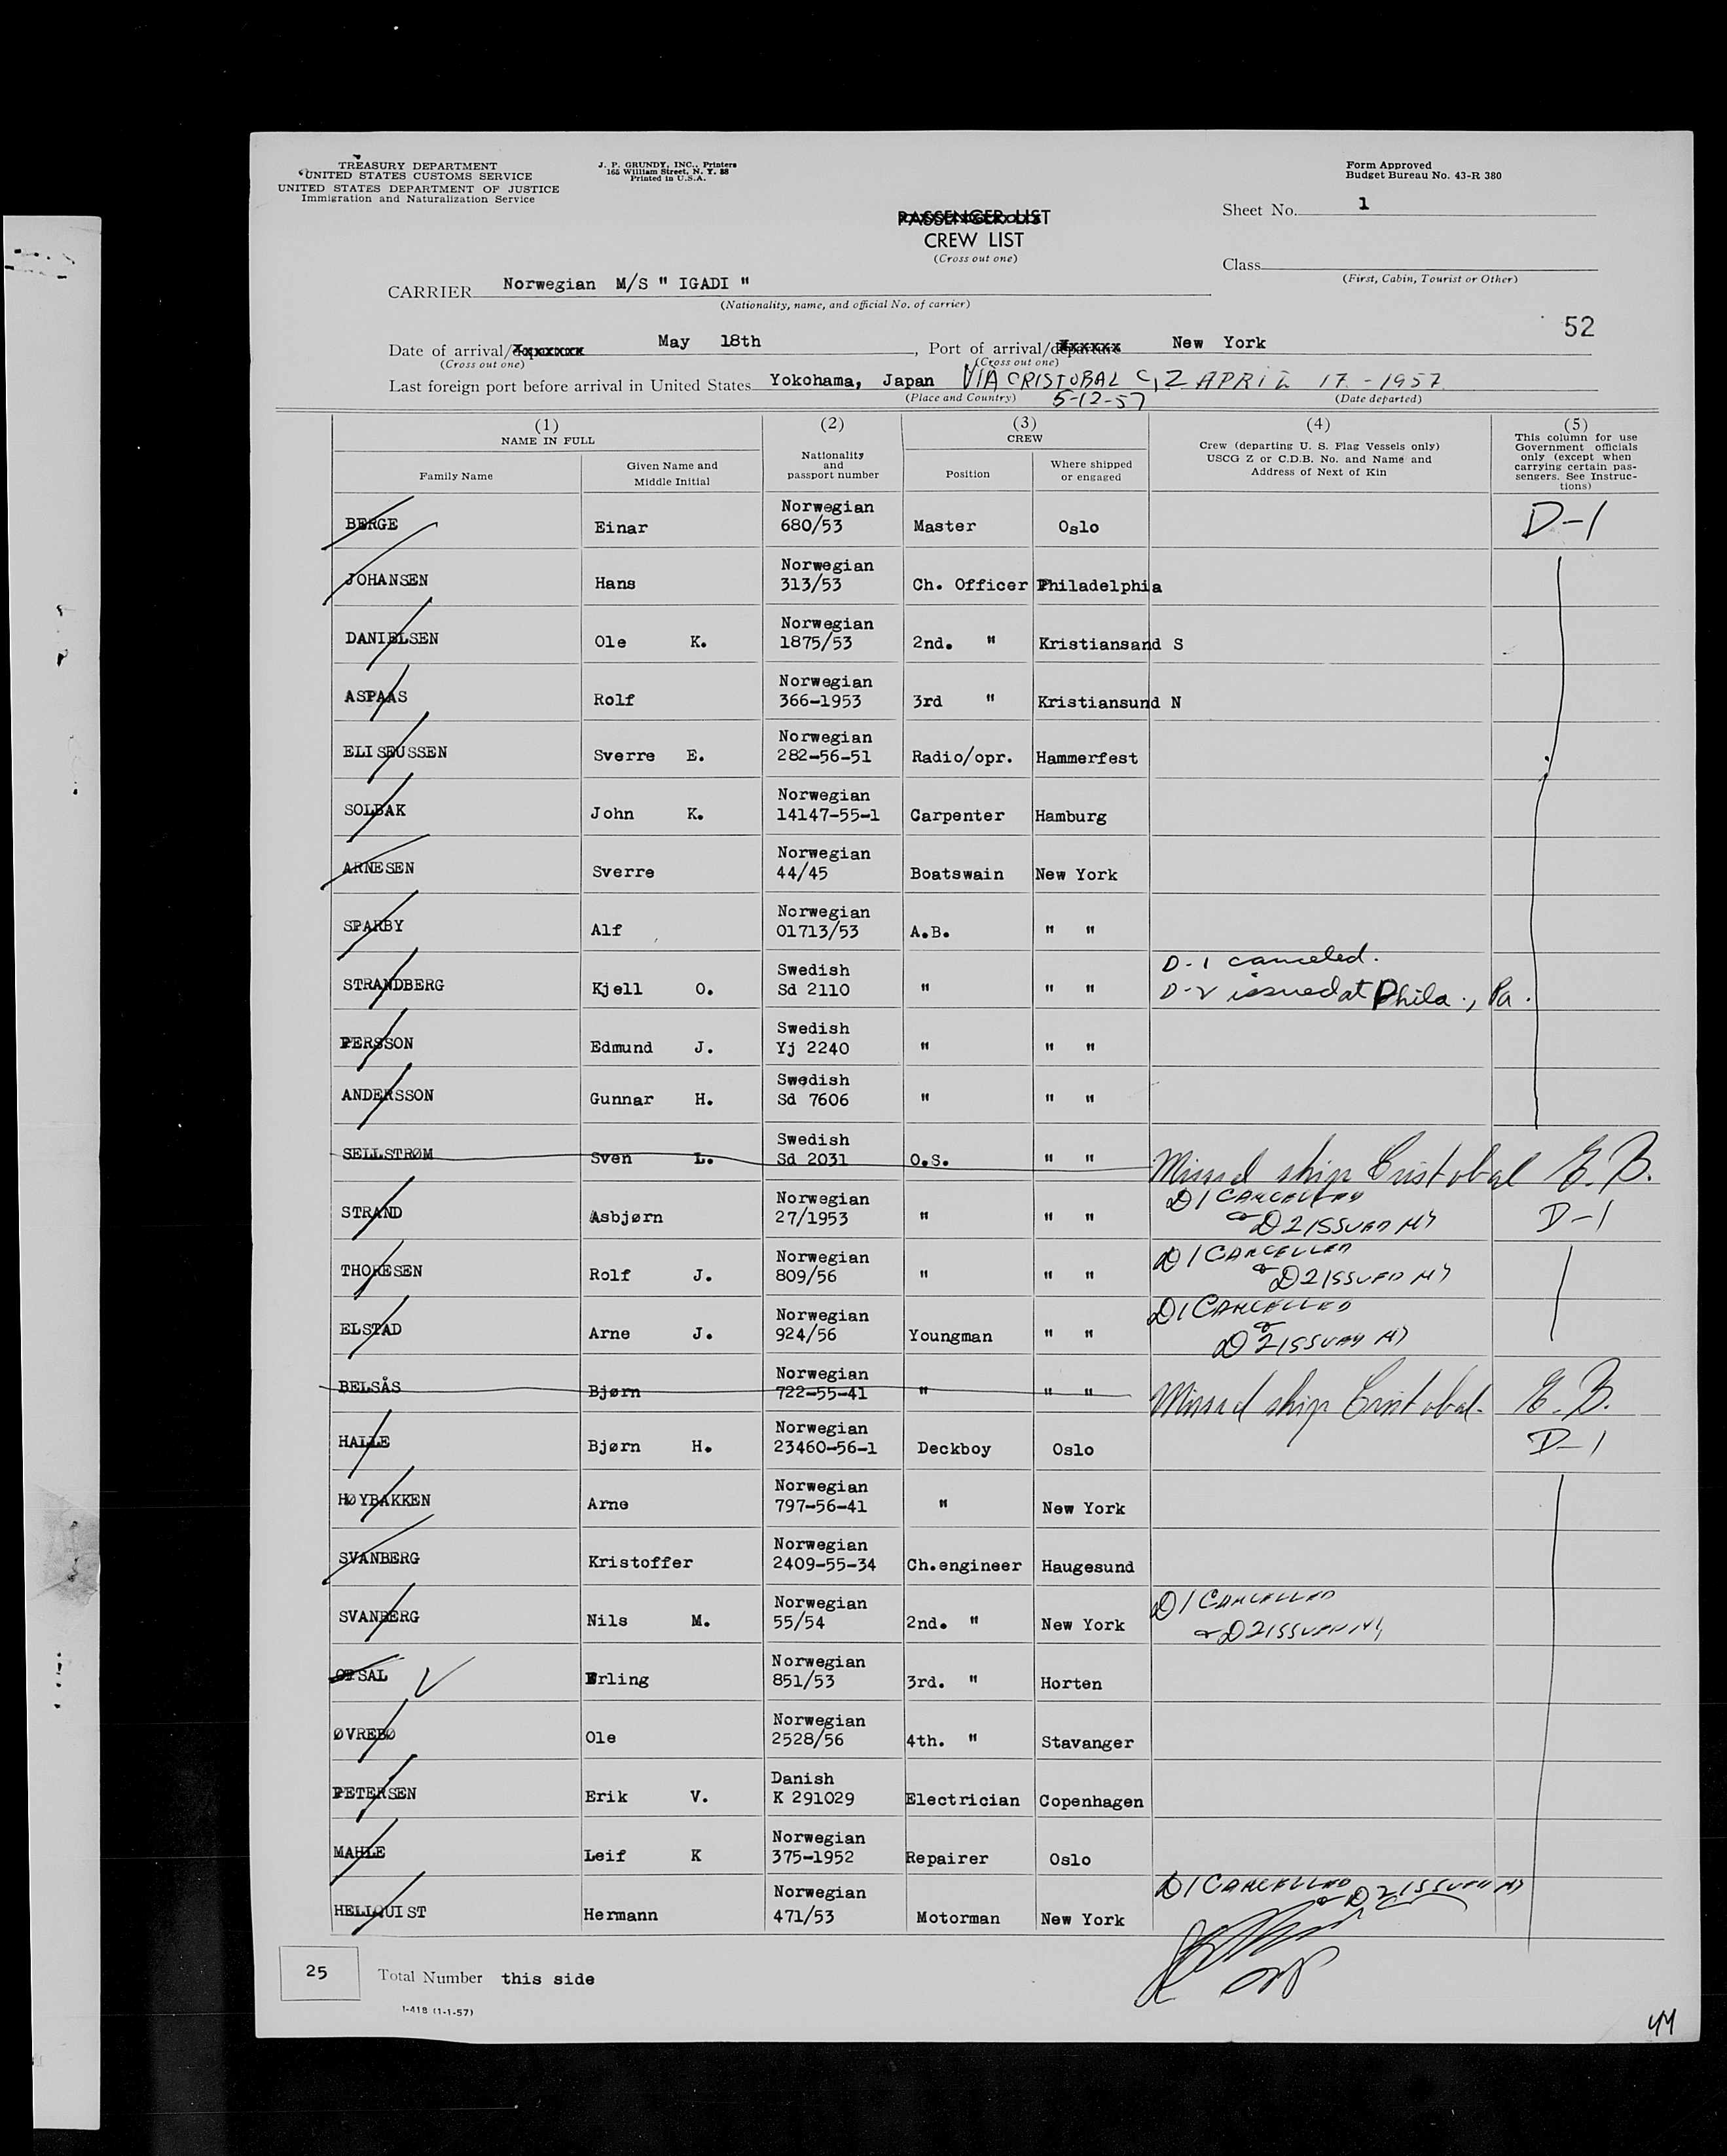 TREASURY DEPARTMENT
UNITED STATES CUSTOMS SERVICE
UNITED STATES DEPARTMENT OF JUSTICE
Immigration and Naturalization Service
J. P. GRUNDY, INC., Printers
165 William Street, N. Y. 38
Printed in U.S.A.
Form Approved
Budget Bureau No. 43-R 380
PASSENGER LIST
CREW LIST
(Cross out one)
Sheet No. 1
Class
(First, Cabin, Tourist or Other)
CARRIER Norwegian M/S " IGADI "
(Nationality, name, and official No. of carrier)
52
Date of arrival/departure May 18th, Port of arrival/departure New York
(Cross out one) (Cross out one)
Last foreign port before arrival in United States Yokohama, Japan VIA CRISTOBAL C,Z APRIL 17-1957
(Place and Country) 5-12-57 (Date departed)
(1) (2) (3) (4) (5)
NAME IN FULL
Family Name
Given Name and Middle Initial
Nationality and passport number
CREW
Position
Where shipped or engaged
Crew (departing U. S. Flag Vessels only)
USCG Z or C.D.B. No. and Name and
Address of Next of Kin
This column for use
Government officials
only (except when
carrying certain pas-
sengers. See Instruc-
tions)
BERGE Einar Norwegian 680/53 Master Oslo D-1
JOHANSEN Hans Norwegian 313/53 Ch. Officer Philadelphia
DANIELSEN Ole K. Norwegian 1875/53 2nd. " Kristiansand S
ASPAAS Rolf Norwegian 366-1953 3rd " Kristiansund N
ELISEUSSEN Sverre E. Norwegian 282-56-51 Radio/opr. Hammerfest
SOLBAK John K. Norwegian 14147-55-1 Carpenter Hamburg
ARNESEN Sverre Norwegian 44/45 Boatswain New York
SPARBY Alf Norwegian 01713/53 A.B. " "
STRANDBERG Kjell O. Swedish Sd 2110 " " " D-1 canceled. D-2 issued at Phila., Pa.
PERSSON Edmund J. Swedish Yj 2240 " " "
ANDERSSON Gunnar H. Swedish Sd 7606 " " "
SELLSTRØM Sven L. Swedish Sd 2031 O.S. " " Missed ship Cristobal E.B.
STRAND Asbjørn Norwegian 27/1953 " " " D1 CANCELLED & D2 ISSUED NY D-1
THORESEN Rolf J. Norwegian 809/56 " " " D1 CANCELLED & D2 ISSUED NY
ELSTAD Arne J. Norwegian 924/56 Youngman " " D1 CANCELLED & D2 ISSUED NY
BELSÅS Bjørn Norwegian 722-55-41 " " " Missed ship Cristobal. E.B.
HALLE Bjørn H. Norwegian 23460-56-1 Deckboy Oslo D-1
HØYBAKKEN Arne Norwegian 797-56-41 " New York
SVANBERG Kristoffer Norwegian 2409-55-34 Ch.engineer Haugesund
SVANBERG Nils M. Norwegian 55/54 2nd. " New York D1 CANCELLED & D2 ISSUED NY
OPSAL Erling Norwegian 851/53 3rd. " Horten
ØVREBØ Ole Norwegian 2528/56 4th. " Stavanger
PETERSEN Erik V. Danish K 291029 Electrician Copenhagen
MAHLE Leif K Norwegian 375-1952 Repairer Oslo
HELLQUIST Hermann Norwegian 471/53 Motorman New York D1 CANCELLED & D2 ISSUED NY
25 Total Number this side
I-418 (1-1-57)